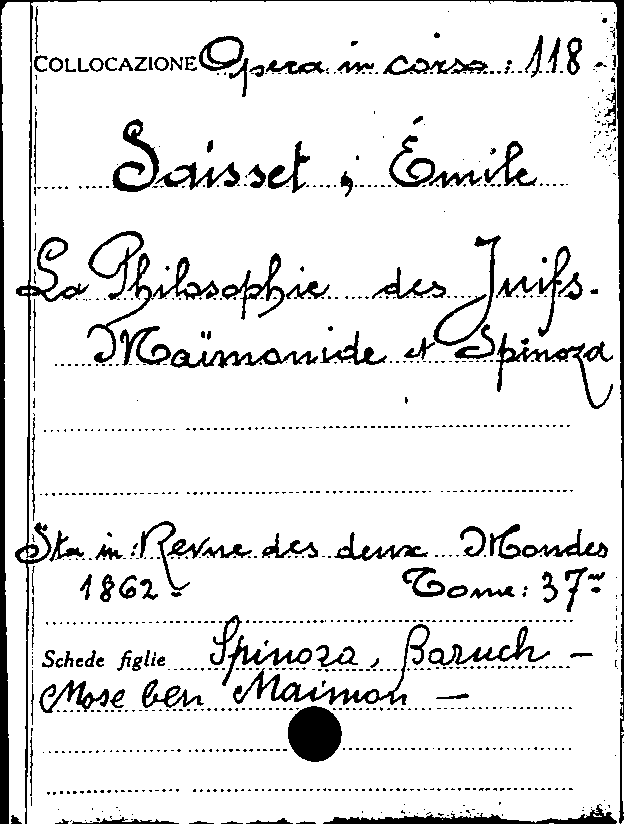 COLLOCAZIONE Opera in corso: 118.
Saisset, Émile
La Philosophie des Juifs.
Maïmonide et Spinoza
Sta in: Revue des deux Mondes
1862. Tome: 37me
Schede figlie Spinoza, Baruch –
Mose ben Maimon –